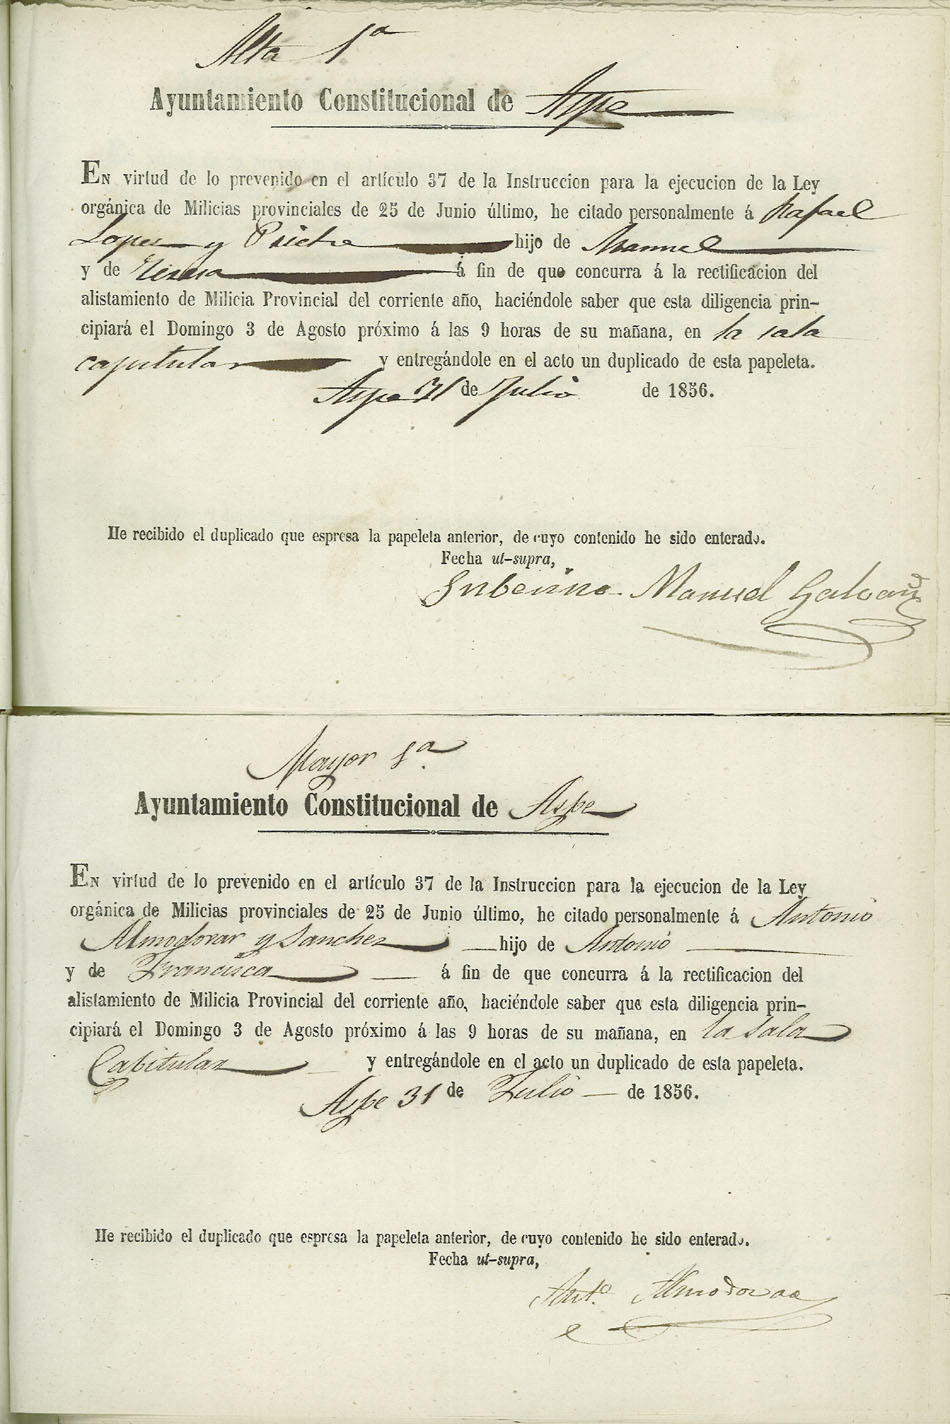 Alta 1ª
Ayuntamiento Constitucional de Aspe
En virtud de lo prevenido en el artículo 37 de la Instruccion para la ejecucion de la Ley
orgánica de Milicias provinciales de 25 de Junio último, he citado personalmente á Rafael
Lopez y hijo de Manuel
y de Teresa á fin de que concurra á la rectificacion del
alistamiento de Milicia Provincial del corriente año, haciéndole saber que esta diligencia prin-
cipiará el Domingo 3 de Agosto próximo á las 9 horas de su mañana, en la sala
capitular y entregándole en el acto un duplicado de esta papeleta.
Aspe 31 de Julio de 1856.
He recibido el duplicado que espresa la papeleta anterior, de cuyo contenido he sido enterado.
Fecha ut-supra,
Manuel Galvañ
Mayor 1ª
Ayuntamiento Constitucional de Aspe
En virtud de lo prevenido en el artículo 37 de la Instruccion para la ejecucion de la Ley
orgánica de Milicias provinciales de 25 de Junio último, he citado personalmente á Antonio
Almodovar y Sanchez hijo de Antonio
y de Francisca á fin de que concurra á la rectificacion del
alistamiento de Milicia Provincial del corriente año, haciéndole saber que esta diligencia prin-
cipiará el Domingo 3 de Agosto próximo á las 9 horas de su mañana, en la Sala
Capitular y entregándole en el acto un duplicado de esta papeleta.
Aspe 31 de Julio de 1856.
He recibido el duplicado que espresa la papeleta anterior, de cuyo contenido he sido enterado.
Fecha ut-supra,
Antº Almodovar